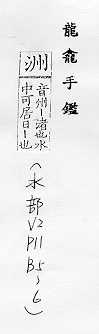 龍龕手鑑
洲
音州―渚也水
中可居曰―也
(水部
V2
P11
B5~6)